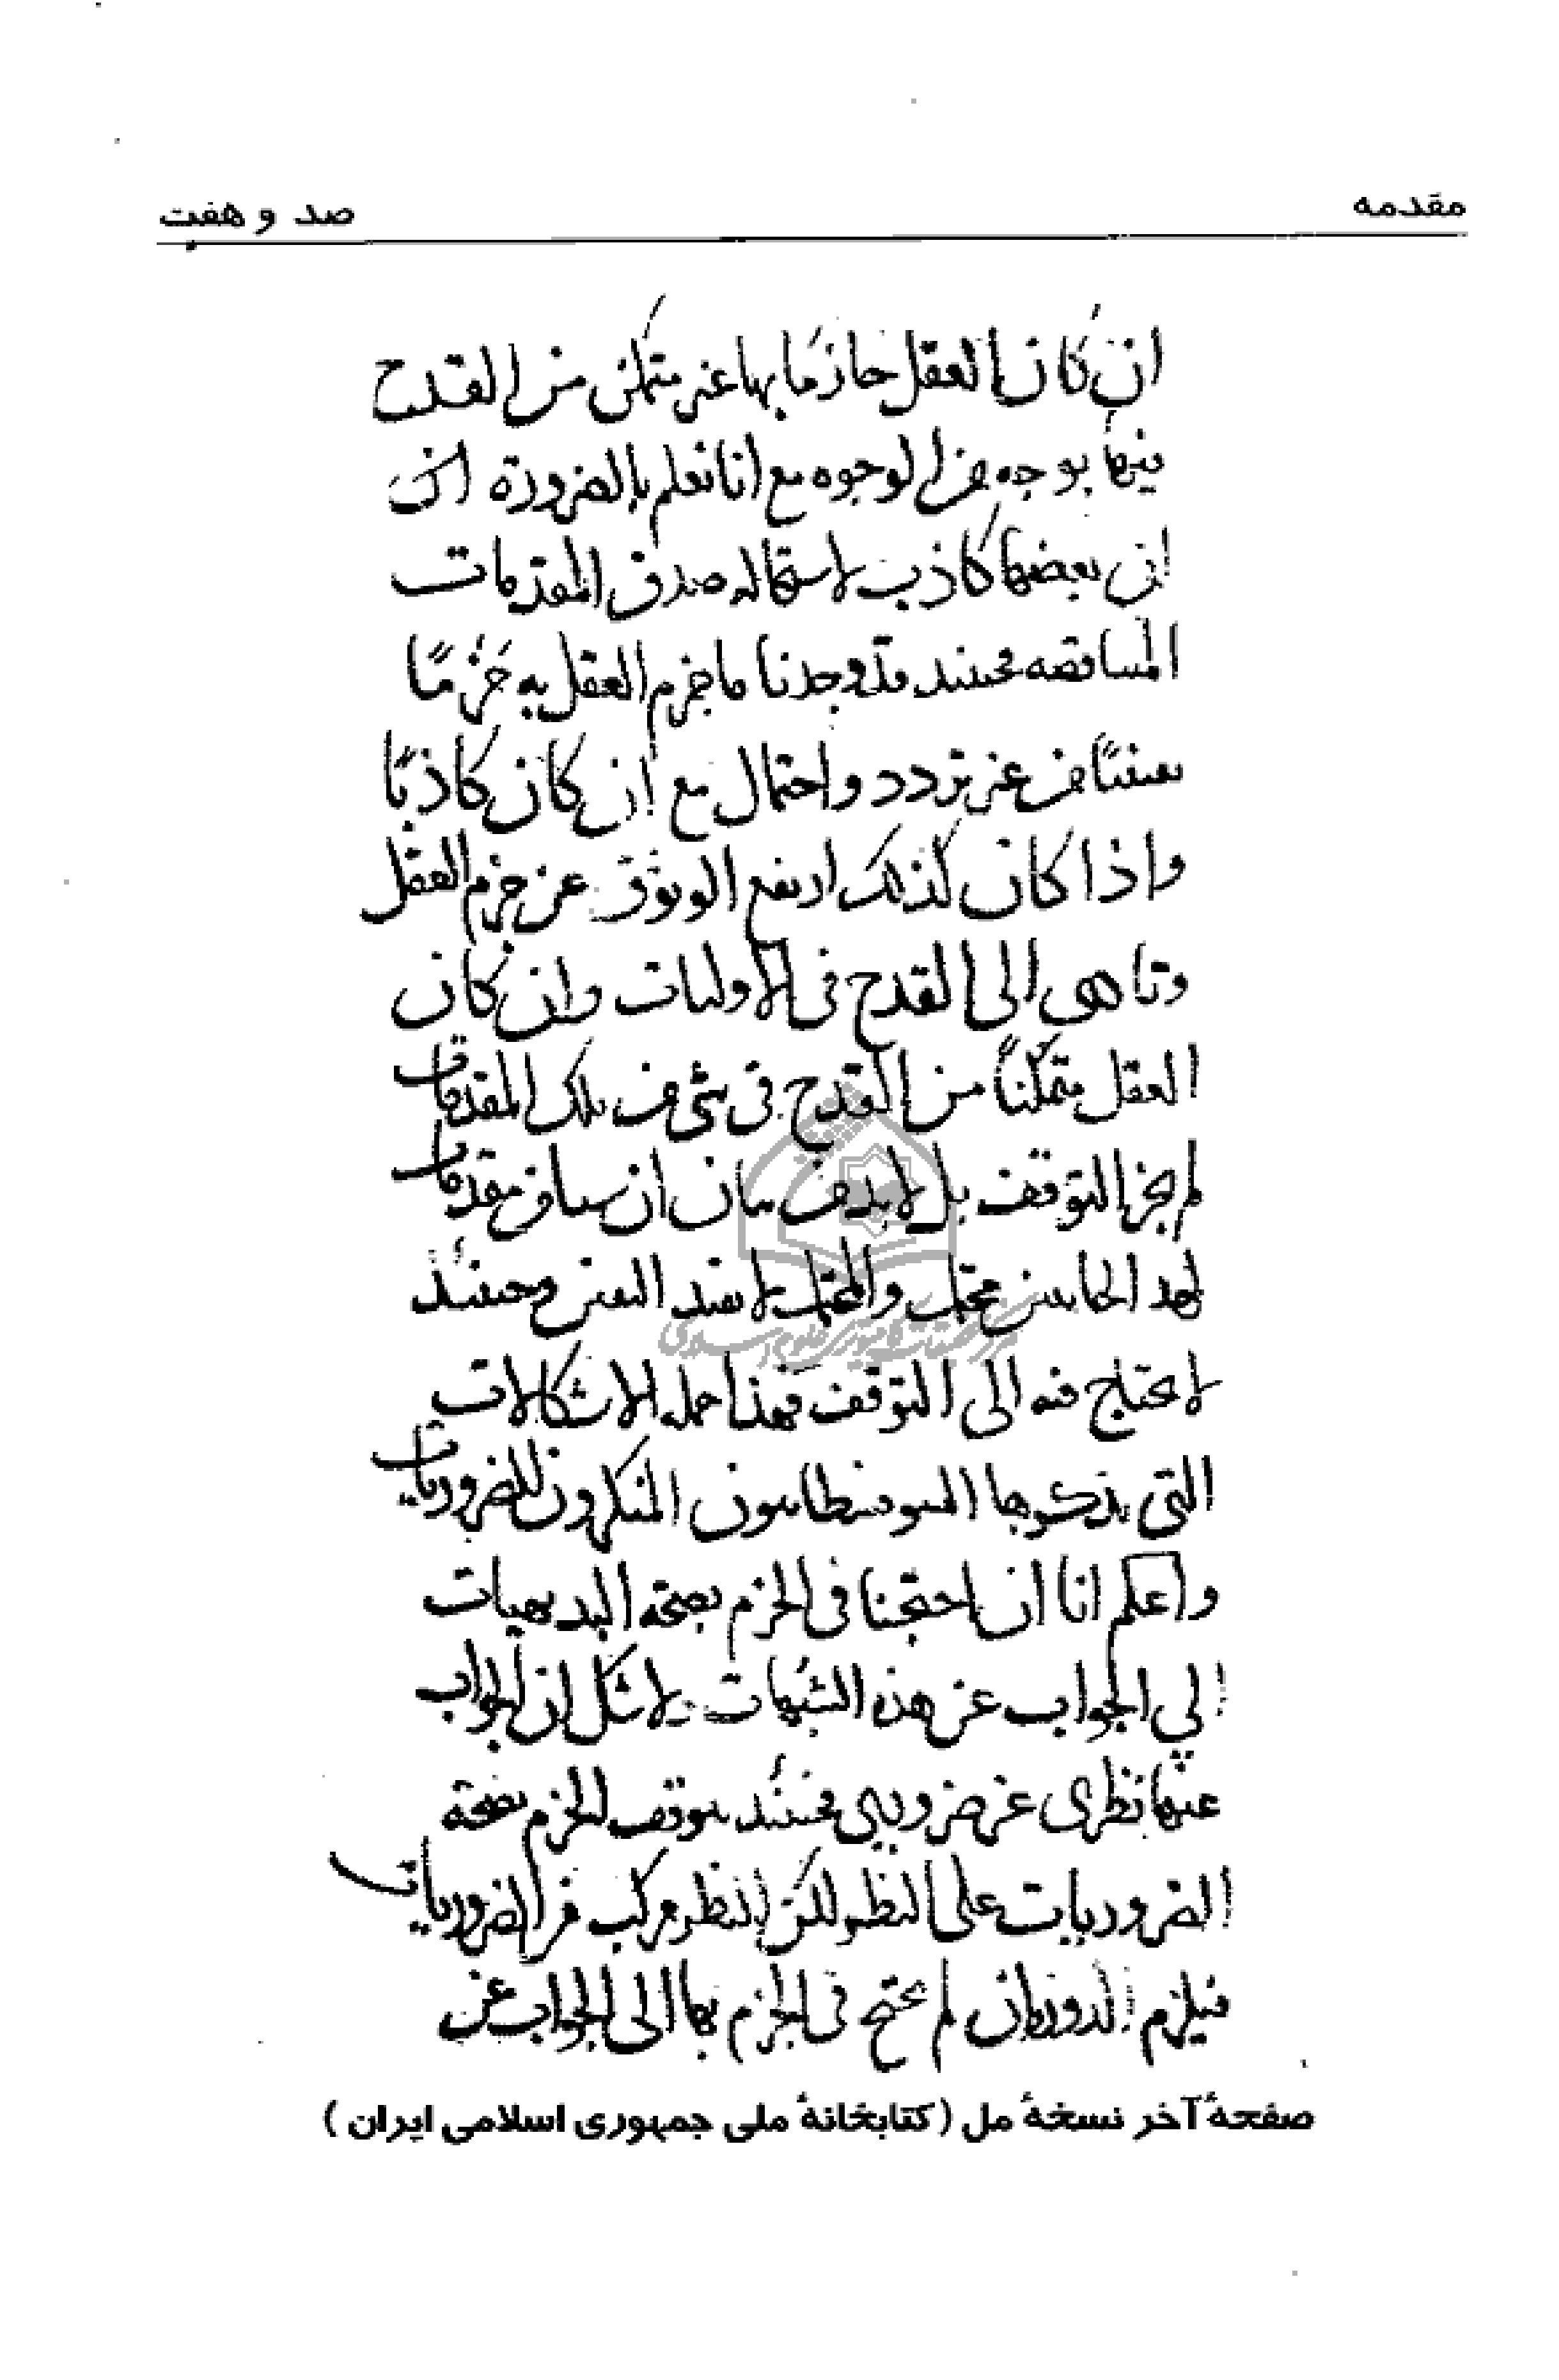 مقدمه
صد و هفت
ان كان العقل جازمًا بها غير متمكن من القدح
فيها بوجه من الوجوه مع انا نعلم بالضرورة
ان بعضها كاذب لاستحاله صدق المقدمات
المتناقضه فحينئذ قد وجدنا ما جزم العقل به جَزْمًا
من غير تردد واحتمال مع ان كان كاذبًا
واذا كان كذلك ارتفع الوثوق عن جزم العقل
وتاهى الى القدح فى الاوليات وان كان
العقل متمكّناً من القدح فى شئ من تلك المقدمات
لم يجز التوقف بل لا بد من بيان ان مقدمات
احد الجانبين محتمل والمحتمل لا يفيد اليقين وحينئذ
لا يحتاج فيه الى التوقف فهذا جمله الاشكالات
التى يذكرها السوفسطاييون المنكرون للضروريات
واعلم انا ان احتجنا فى الجزم بصحة البديهيات
الي الجواب عن هذه الشبهات لا شك ان الجواب
عنها نظرى غير ضرورى فحينئذ يتوقف الجزم بصحة
الضروريات على النظر لكن النظر مركب من الضروريات
فيلزم الدور وان لم يحتج فى الجزم بها الى الجواب عن
صفحهٔ آخر نسخهٔ مل (کتابخانهٔ ملی جمهوری اسلامی ایران)